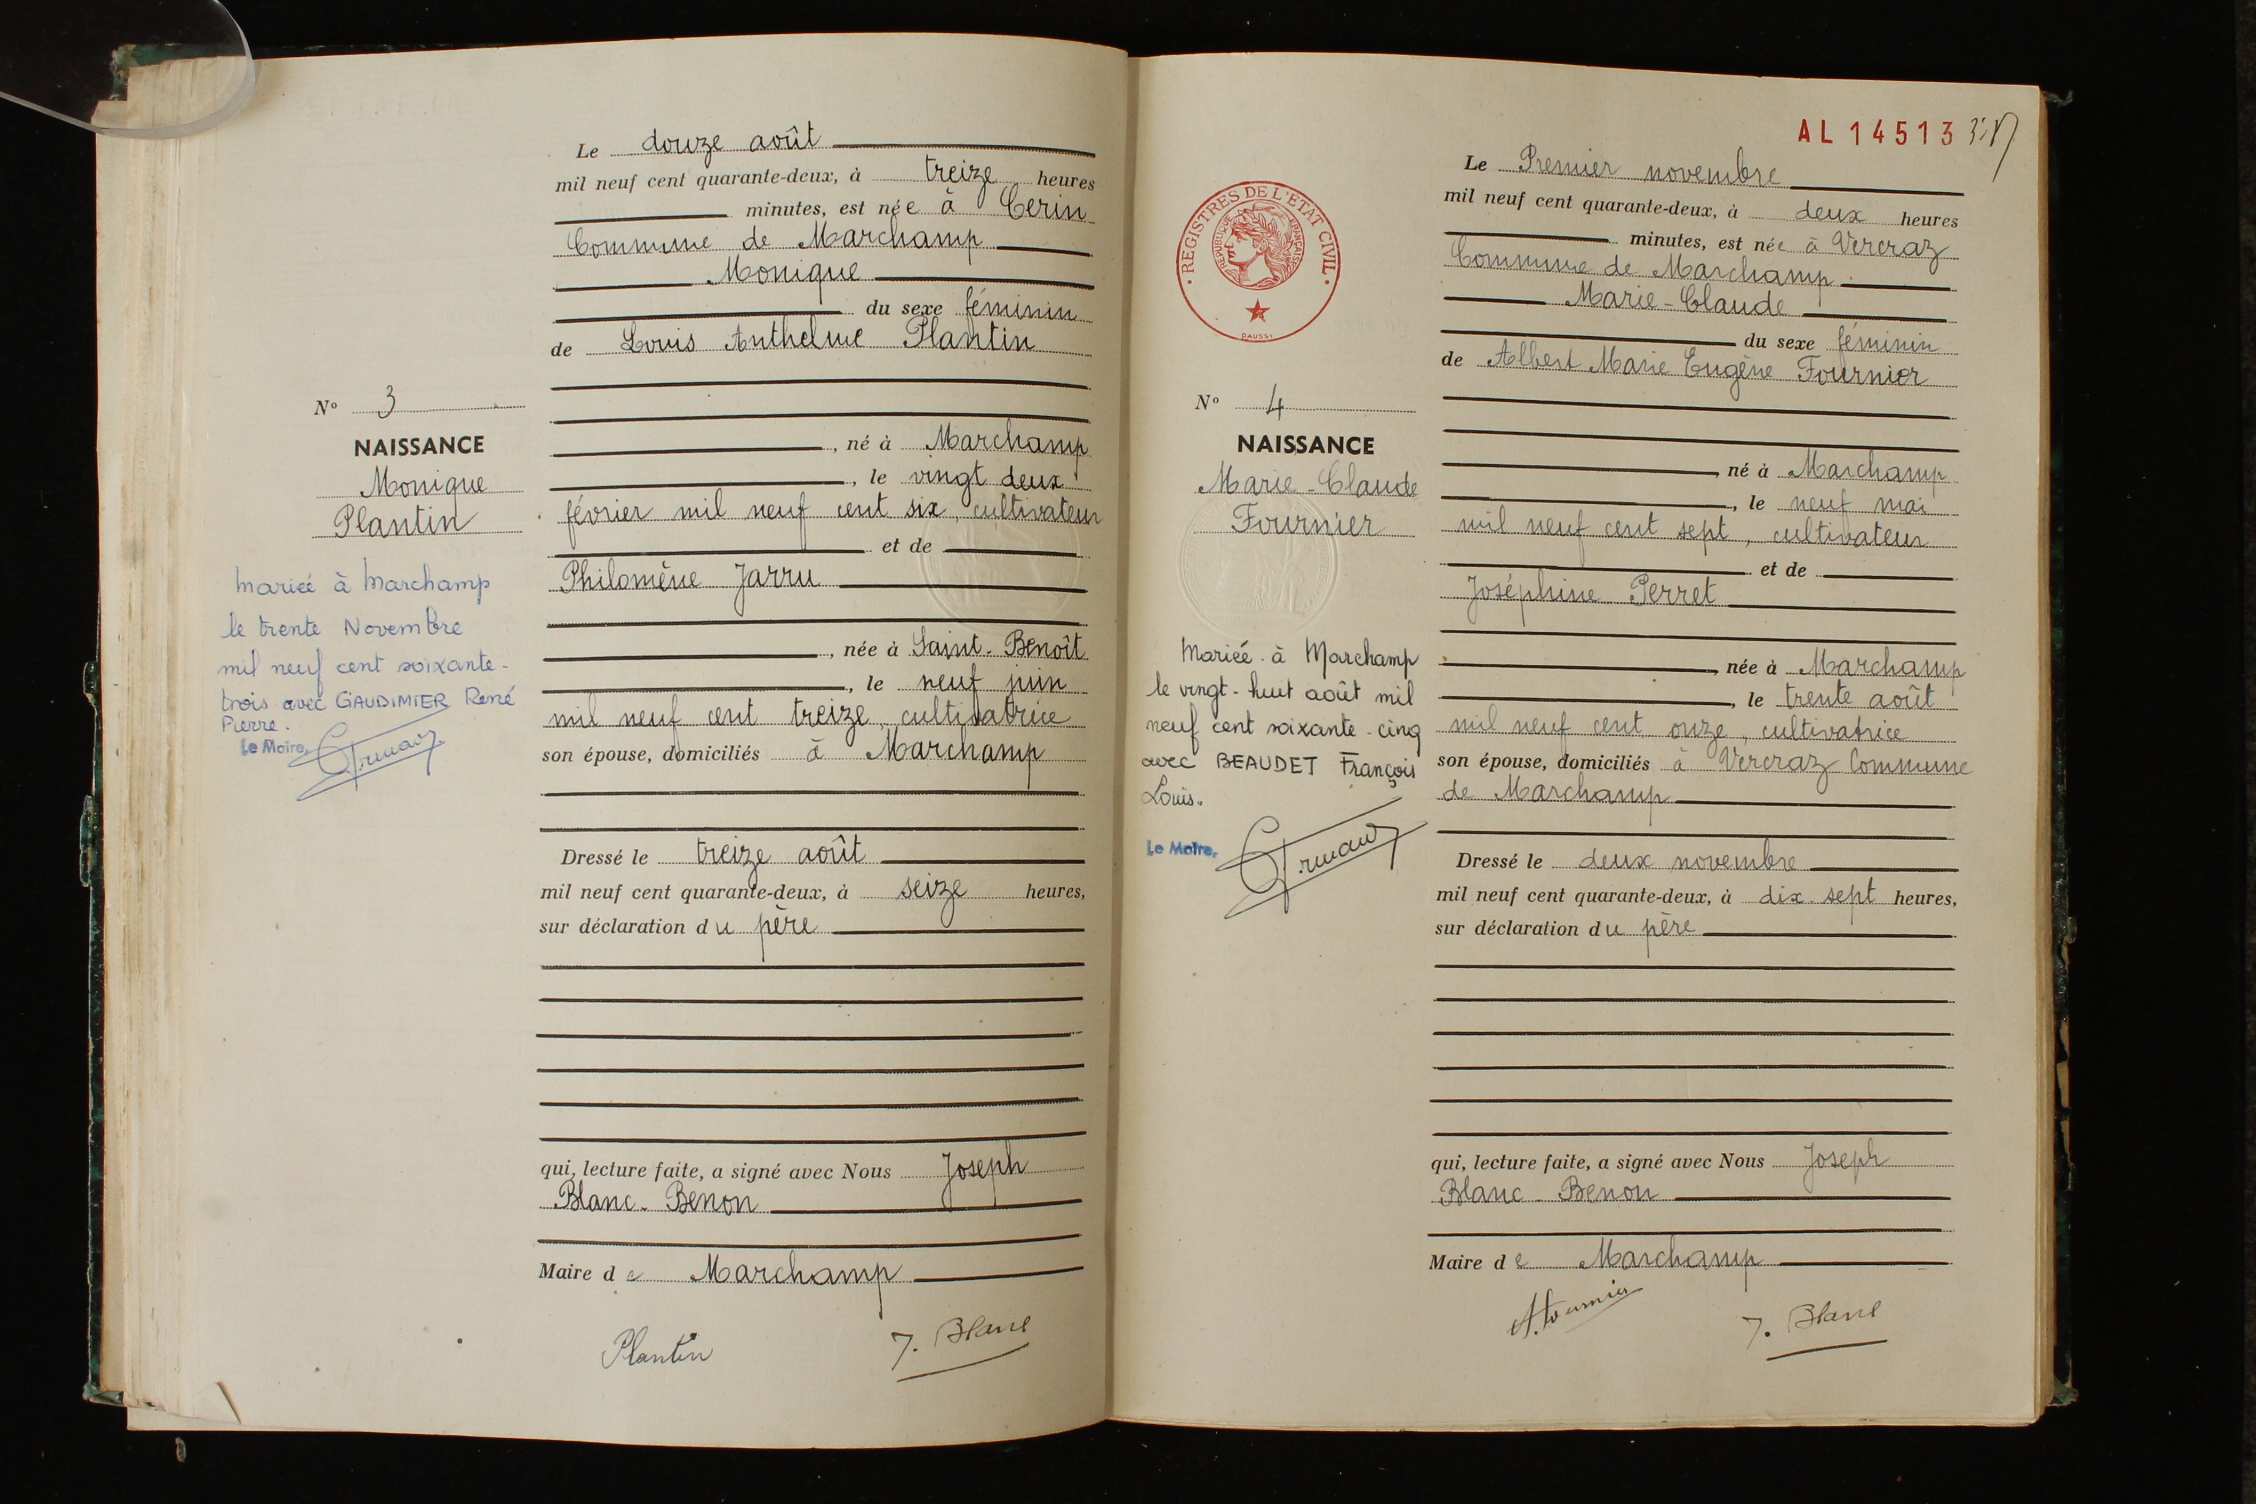 Le douze août
mil neuf cent quarante-deux, à treize heures
minutes, est née à Cerin
Commune de Marchamp
Monique
du sexe féminin
de Louis Anthelme Plantin
né à Marchamp
, le vingt deux
février mil neuf cent six, cultivateur
et de
Philomène Jarru
, née à Saint-Benoît
, le neuf juin
mil neuf cent treize, cultivatrice
son épouse, domiciliés à Marchamp
Dressé le treize août
mil neuf cent quarante-deux, à seize heures,
sur déclaration du père
qui, lecture faite, a signé avec Nous Joseph
Blanc-Benon
Maire de Marchamp
Plantin J. Blanc
No 3
NAISSANCE
Monique
Plantin
Mariée à Marchamp
le trente Novembre
mil neuf cent soixante-
trois avec GAUDIMIER René
Pierre.
Le Maire,
AL 14513
REGISTRES DE L'ÉTAT CIVIL
RÉPUBLIQUE FRANÇAISE
DAUSSY
No 4
NAISSANCE
Marie-Claude
Fournier
Mariée à Marchamp
le vingt-huit août mil
neuf cent soixante-cinq
avec BEAUDET François
Louis.
Le Maire,
Le Premier novembre
mil neuf cent quarante-deux, à deux heures
minutes, est née à Vercraz
Commune de Marchamp
Marie-Claude
du sexe féminin
de Albert Marie Eugène Fournier
né à Marchamp
, le neuf mai
mil neuf cent sept, cultivateur
et de
Joséphine Perret
née à Marchamp
, le trente août
mil neuf cent onze, cultivatrice
son épouse, domiciliés à Vercraz Commune
de Marchamp
Dressé le deux novembre
mil neuf cent quarante-deux, à dix sept heures,
sur déclaration du père
qui, lecture faite, a signé avec Nous Joseph
Blanc-Benon
Maire de Marchamp
A. Fournier J. Blanc